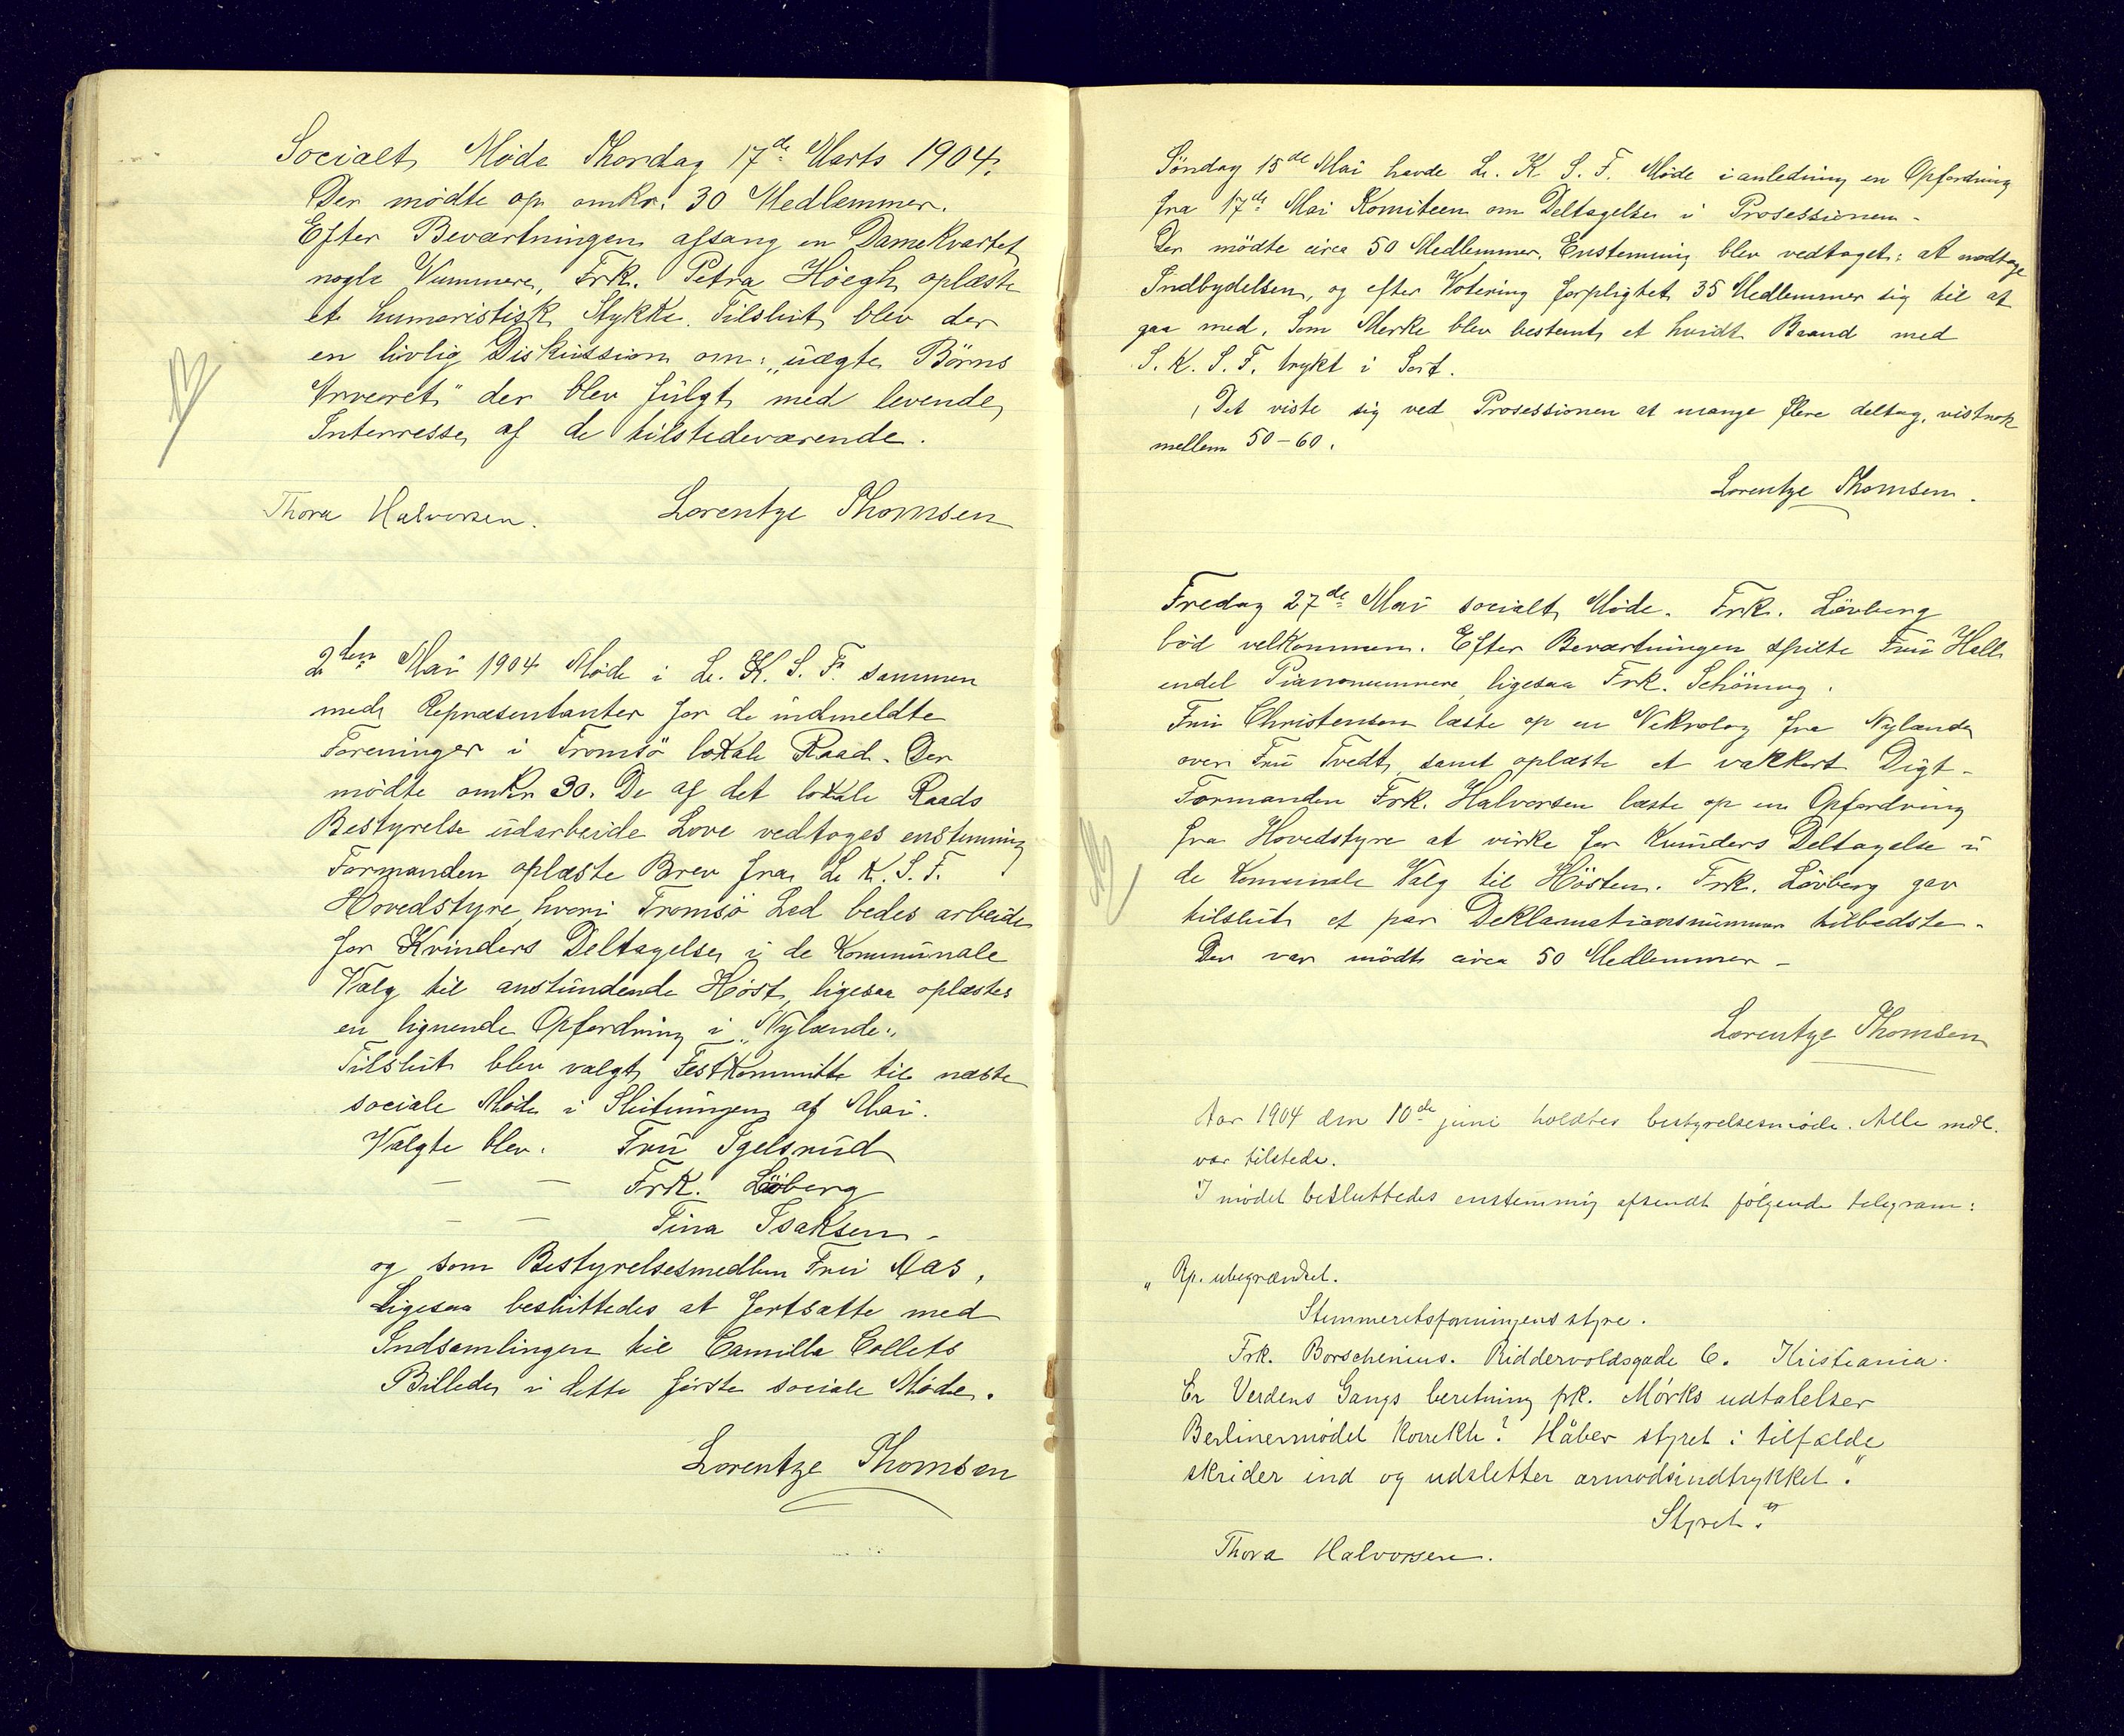 Socialt Møde Thorsdag 17de Marts 1904.
Der mødte op omkr. 30 Medlemmer.
Efter Beværtningen afsang en Damekvartet
nogle Nummere, Frk. Petra Höegh oplæste
et humoristisk Stykke. Tilslut blev der
en livlig Diskussion om: „uægte Börns
Arveret" der blev fulgt med levende
Interresse af de tilstedeværende.
Thora Halvorsen. Lorentze Thomsen
2den Mai 1904 Møde i L. K. S. F. sammen
med Repræsentanter for de indmeldte
Foreninger i Tromsö lokale Raad. Der
mödte omkr 30. De af det lokale Raads
Bestyrelse udarbeide Love vedtoges enstemmig
Formanden oplæste Brev fra L. K. S. F.
Hovedstyre, hvori Tromsö Led bedes arbeide
for Kvinders Deltagelse i de Kommunale
Valg til anstundende Höst, ligesaa oplæstes
en lignende Opfordring i „Nylænde".
Tilslut blev valgt Festkommitte til næste
sociale Møde i Slutningen af Mai.
Valgte blev: Fru Igelsrud
— — Frk. Löberg
— — Tina Isaksen -
og som Bestyrelsesmedlem Fru Aas,
Ligesaa besluttedes at fortsætte med
Indsamlingen til Camilla Collets
Billede i dette förste sociale Møde.
Lorentze Thomsen
Söndag 15de Mai havde L. K. S. F. Møde i anledning en Opfordring
fra 17de Mai Komiteen om Deltagelse i Prosessionen -
Der mödte circa 50 Medlemmer. Enstemmig blev vedtaget: at modtage
Indbydelsen, og efter Votering forpligtet 35 Medlemmer sig til at
gaa med. Som Merke blev bestemt et hvidt Baand med
S. K. S. F. trykt i Sort.
Det viste sig ved Prosessionen at mange flere deltog, vistnok
mellem 50-60.
Lorentze Thomsen.
Fredag 27de Mai socialt Møde. Frk. Lövberg
böd velkommen. Efter Beværtningen spilte Fru Hall
endel Pianonummere, ligesaa Frk. Schöning.
Fru Christensen læste op en Nekrolog fra Nylænde
over Fru Tvedt, samt oplæste et vakkert Digt -
Formanden Frk. Halvorsen læste op en Opfordring
fra Hovedstyre at virke for Kvinders Deltagelse i
de Komunale Valg til Hösten. Frk. Lövberg gav
tilslut et par Deklamationsnummer tilbedste -
Der var mödt circa 50 Medlemmer -
Lorentze Thomsen
Aar 1904 den 10de juni holdtes bestyrelsesmöde. Alle medl.
var tilstede.
I mödet besluttedes enstemmig afsendt følgende telegram:
„Rp. ubegrændset.
Stemmeretsforeningens styre.
Frk. Borschenius. Riddervoldsgade 6. Kristiania.
Er Verdens Gangs beretning frk. Mörks udtalelser
Berlinermödet korrekte? Håber styret i tilfælde
skrider ind og udsletter armodsindtrykket."
Styret."
Thora Halvorsen.